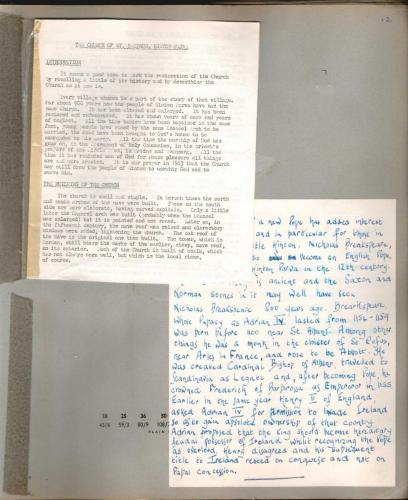 THE CHURCH OF ST. SWITHUN, HINTON PARVA
INTRODUCTION
It seems a good time to mark the restoration of the Church
by recalling a little of its history and by describing the
Church as it now is.
Every village church is a part of the story of that village.
For about 900 years now the people of Hinton Parva have had the
same Church. It has been altered and enlarged. It has been
restored and refurnished. It has known years of care and years
of neglect. All the time babies have been baptised in the same
font, young people have stood by the same Chancel Arch to be
married, the dead have been brought to God's house to be
commended to his mercy. All the time the worship of God has
gone on, in the Sacrament of Holy Communion, in the priest's
prayers at the in Matins and Evensong. All the
time it has reminded men of God for whose pleasure all things
are and were created. It is our prayer in 1953 that the Church
may still draw the people of Hinton to worship God and to
serve Him.
THE BUILDING OF THE CHURCH
The church is small and simple. In Norman times the north
and south arches of the nave were built. Those on the south
side are more elaborate, having carved capitals. Only a little
later the Chancel arch was built (probably when the Chancel
was enlarged) but it is pointed and not round. Later on, in
the fifteenth century, the nave roof was raised and clerestory
windows were added, lightening the church. The oak roof of
the nave is the original one then built. The tower, which is
Norman, still bears the marks of the earlier, steep, nave roof,
on its exterior. Much of the Church is built of chalk, which
has not always worn well, but which is the local stone,
of course.
a new Pope has added interest
and in particular for those in
Little Hinton. Nicholas Breakspeare,
to become an English Pope,
Hinton Parva in the 12th century.
is ancient and the Saxon and
Norman Stones in it may well have seen
Nicholas Breakspeare 800 years ago. Breakspeare,
whose Papacy as Adrian IV lasted from 1154-1159
was born before 1100 near St. Albans. Among other
things he was a monk in the cloister of St. Rufus,
near Arles in France, and rose to be Abbot. He
was created Cardinal Bishop of Albano, travelled to
Scandinavia as Legate and, after becoming Pope, he
crowned Frederick of Barbarossa as Emperor in 1155.
Earlier in the same year Henry II of England,
asked Adrian IV for permission to invade Ireland
so as to gain absolute ownership of that country.
Adrian proposed that the King should become hereditary
feudal possessor of Ireland whilst recognizing the Pope
as overlord. Henry disagreed and his subsequent
title to Ireland rested on conquest and not on
Papal concession.
18 25 36 50
45/6 59/3 80/9 108/
PLAIN